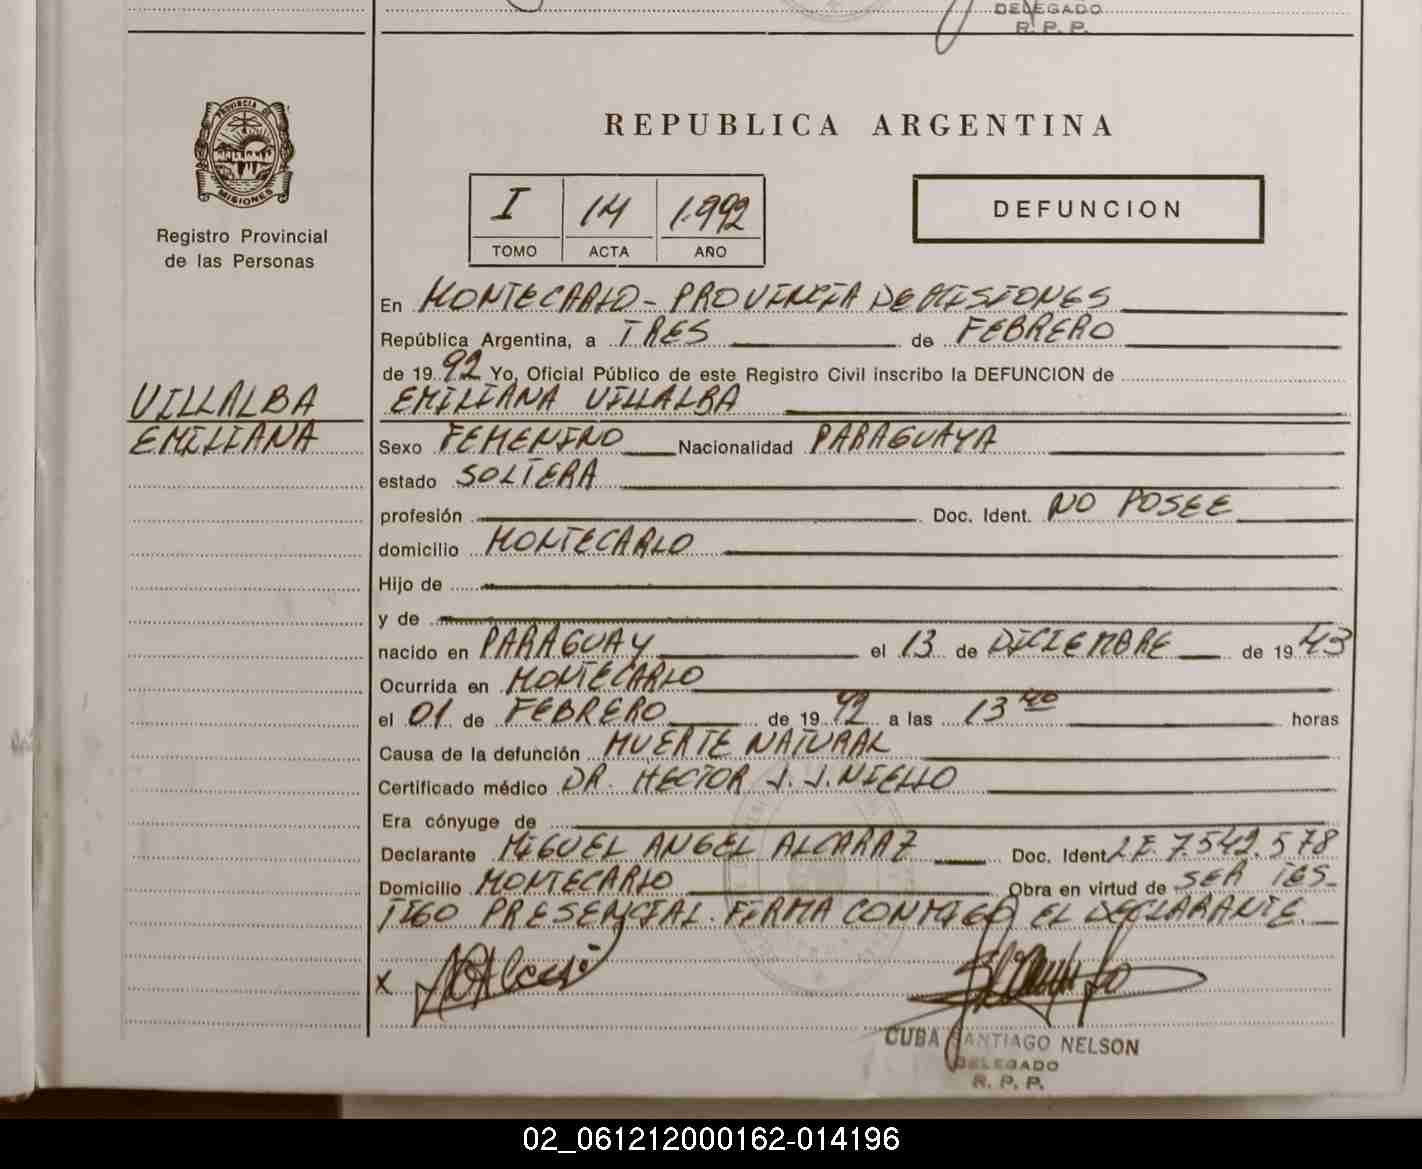 DELEGADO
R. P. P.
PROVINCIA DE
MISIONES
Registro Provincial
de las Personas
REPUBLICA ARGENTINA
I 14 1.992
TOMO ACTA AÑO
DEFUNCION
En MONTECARLO - PROVINCIA DE MISIONES
República Argentina, a TRES de FEBRERO
de 19 92 Yo, Oficial Público de este Registro Civil inscribo la DEFUNCION de
VILLALBA EMILIANA VILLALBA
EMILIANA Sexo FEMENINO Nacionalidad PARAGUAYA
estado SOLTERA
profesión Doc. Ident. NO POSEE
domicilio MONTECARLO
Hijo de
y de
nacido en PARAGUAY el 13 de DICIEMBRE de 19 43
Ocurrida en MONTECARLO
el 01 de FEBRERO de 19 92 a las 13 40 horas
Causa de la defunción MUERTE NATURAL
Certificado médico DR. HECTOR J. J. NIELLO
Era cónyuge de
Declarante MIGUEL ANGEL ALCARAZ Doc. Ident. L.E. 7.542.578
Domicilio MONTECARLO Obra en virtud de SER TES-
TIGO PRESENCIAL. FIRMA CONMIGO EL DECLARANTE.
x
CUBA SANTIAGO NELSON
DELEGADO
R. P. P.
02_061212000162-014196